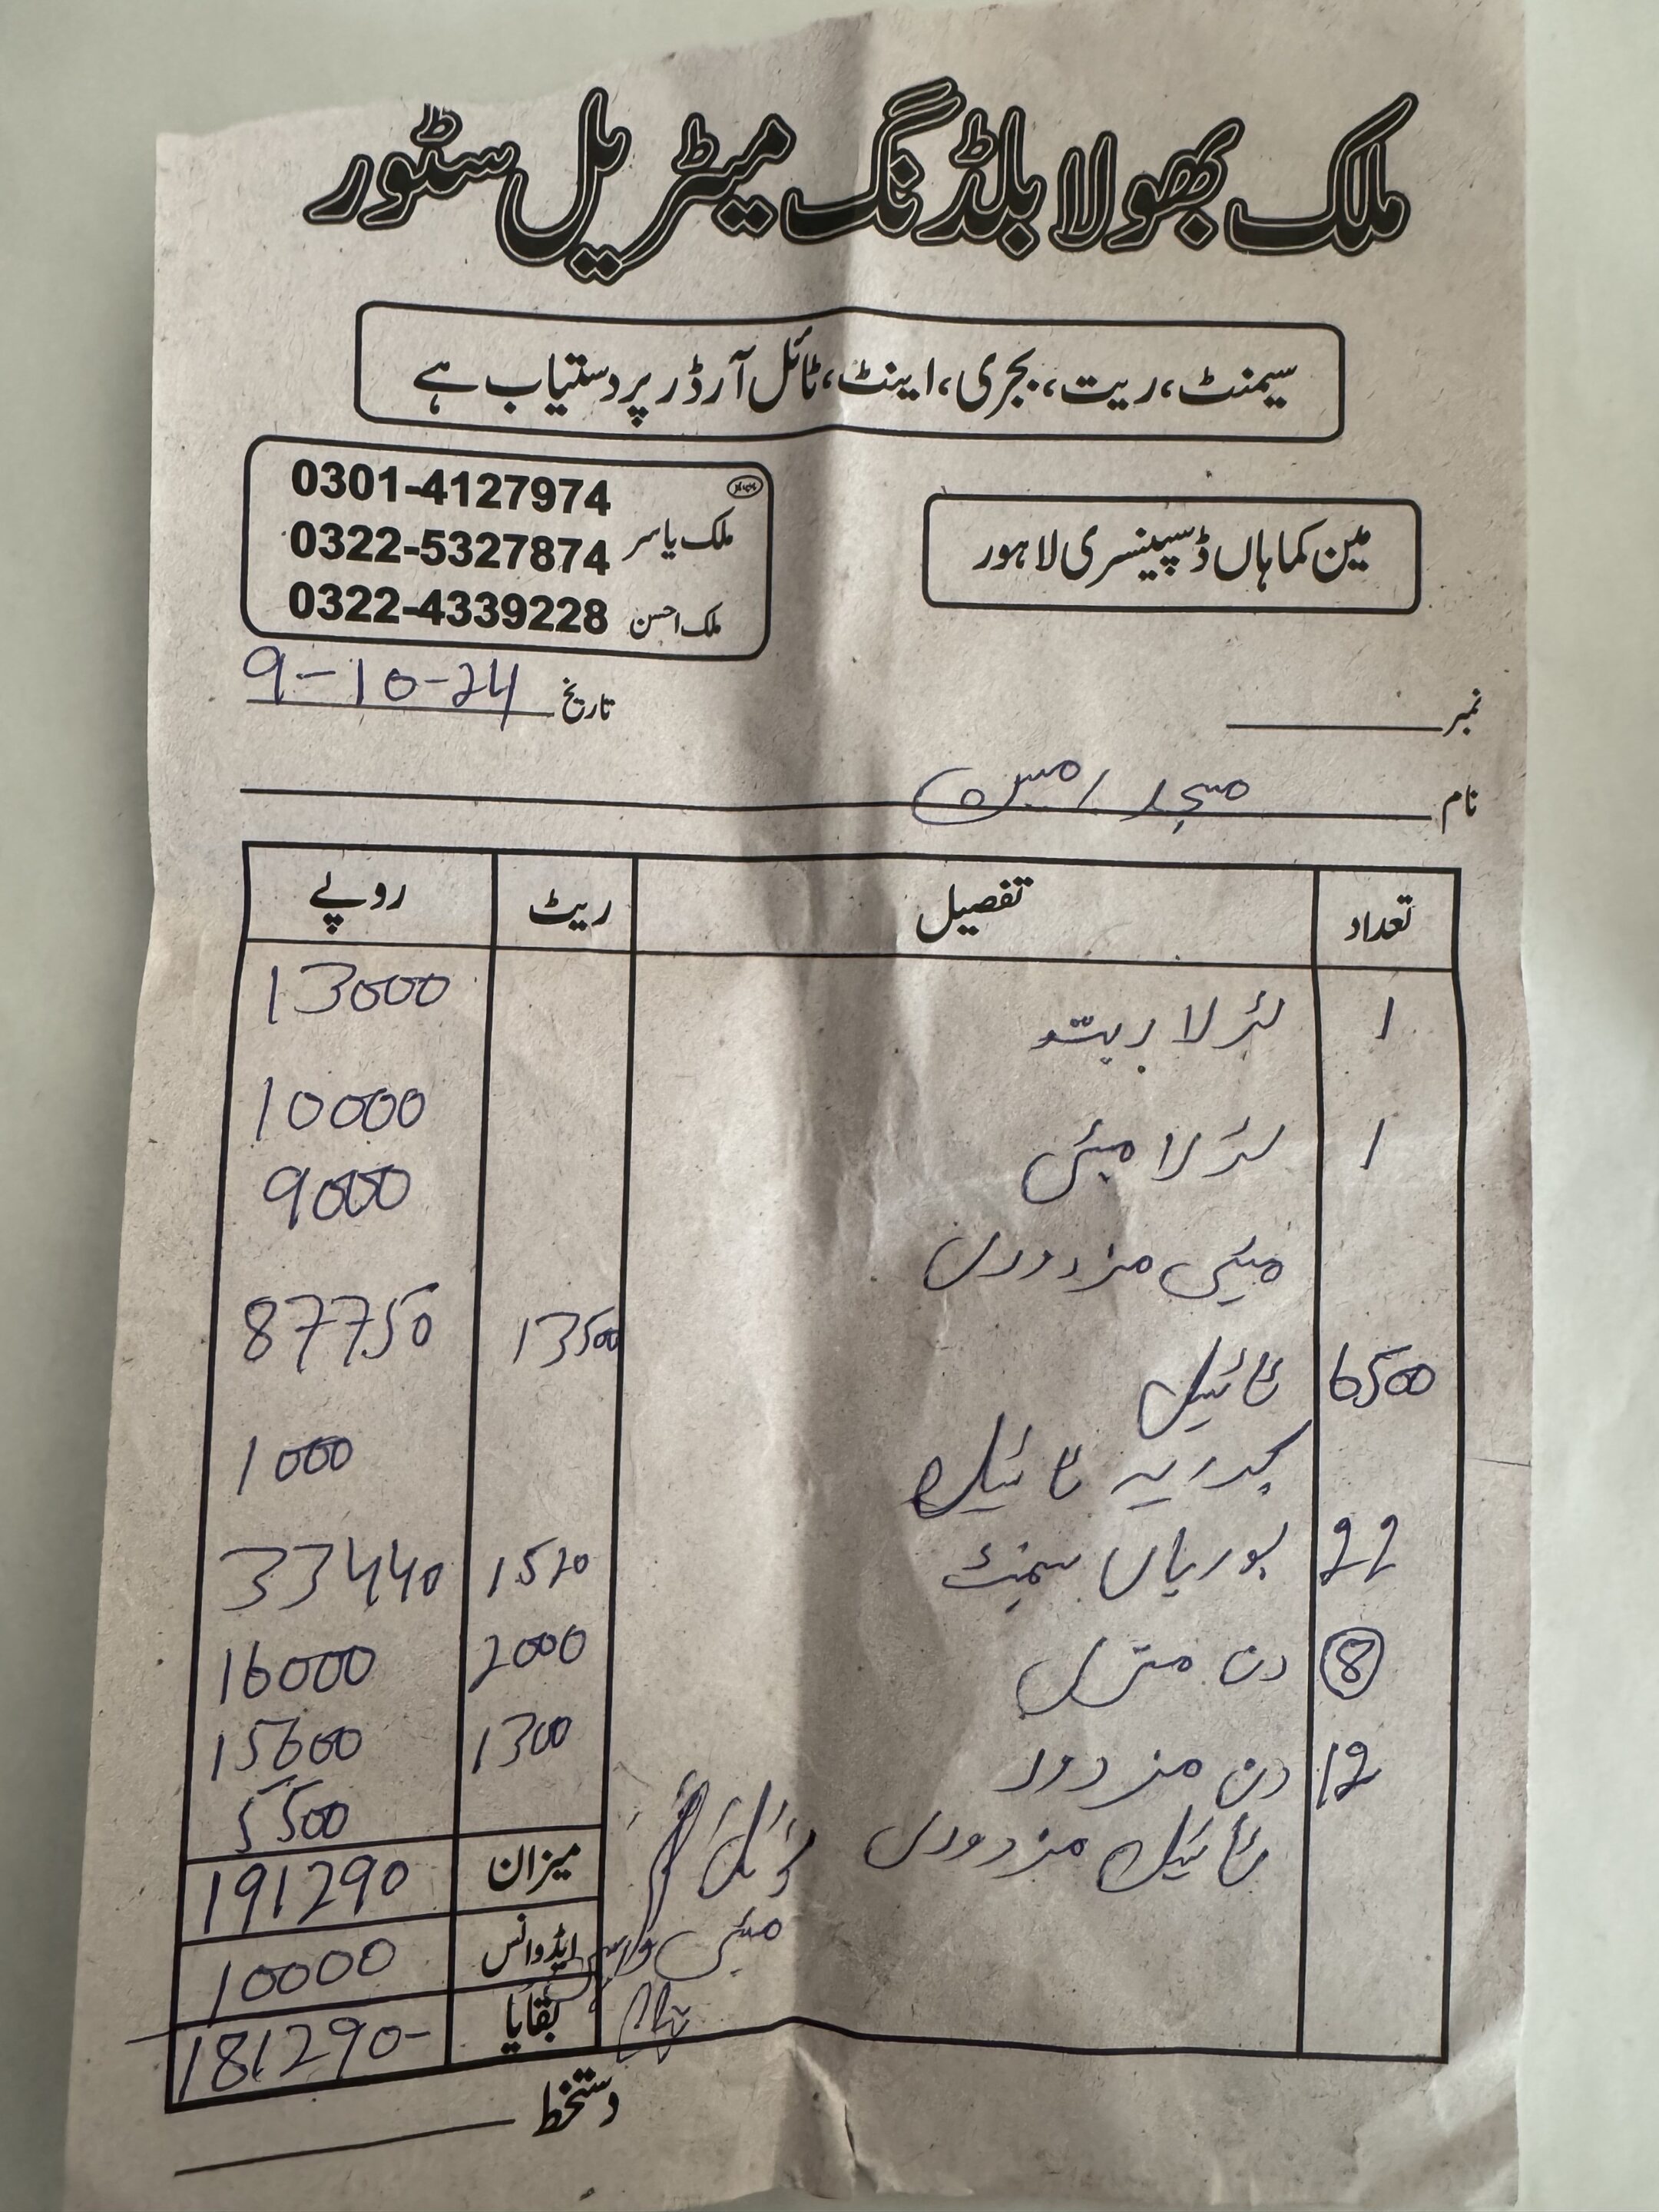 ملک بھولا بلڈنگ میٹریل سٹور
سیمنٹ، ریت، بجری، اینٹ، ٹائل آرڈر پر دستیاب ہے
0301-4127974
ملک یاسر 0322-5327874
ملک احسن 0322-4339228
مین کماہاں ڈسپینسری لاہور
نمبر
تاریخ 9-10-24
نام میجر رمیس
تعداد تفصیل ریٹ روپے
1 ٹرلا ریت 13000
1 ٹرلا مٹی 10000
مٹی مزدوری 9000
6500 ٹائیل 13500 87750
ٹائیل 1000
22 بوریاں سیمنٹ 1520 33440
8 دن مستری 2000 16000
12 دن مزدور 1300 15600
ٹائیل مزدوری 5500
میزان 191290
مٹی
ایڈوانس 10000
بقایا 181290-
دستخط